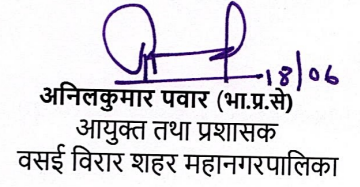 18/06
अनिलकुमार पवार (भा.प्र.से)
आयुक्त तथा प्रशासक
वसई विरार शहर महानगरपालिका